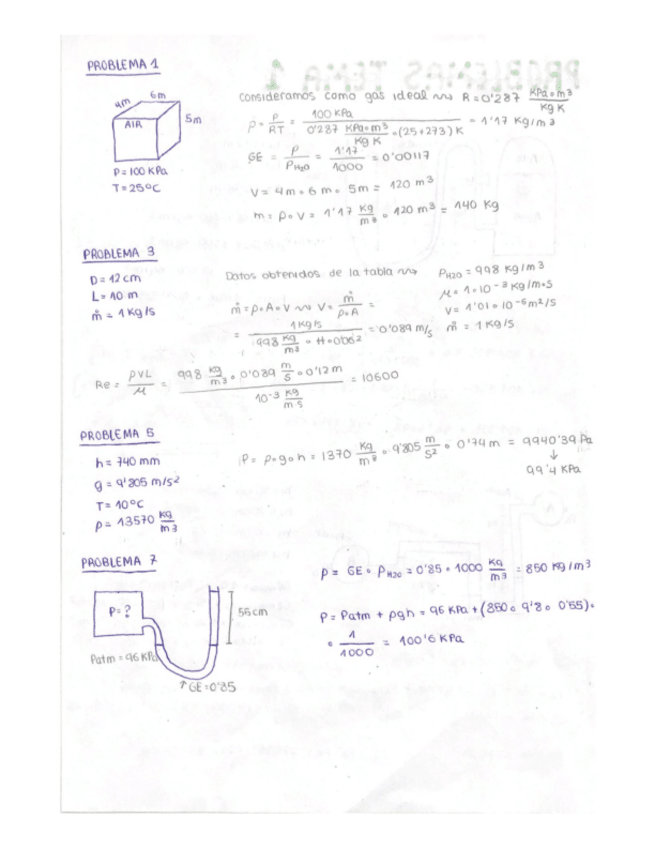 PROBLEMAS TEMA 1
PROBLEMA 1
4m
6m
5m
AIR
P=100 KPa
T=25ºC
Consideramos como gas ideal ⇝ R=0'287 KPa∘m³/Kg K
ρ = P/RT = 100 KPa / 0'287 KPa∘m³/Kg K ∘(25+273)K = 1'17 Kg/m³
GE = ρ/ρH2O = 1'17/1000 = 0'00117
V = 4m∘6m∘5m = 120 m³
m = ρ∘V = 1'17 Kg/m³ ∘ 120 m³ = 140 Kg
PROBLEMA 3
D=12cm
L=10 m
ṁ = 1 Kg/s
Datos obtenidos de la tabla ⇝
ρH2O = 998 Kg/m³
μ = 1∘10⁻³ Kg/m∘s
V = 1'01∘10⁻⁶m²/s
ṁ = 1 Kg/s
ṁ=ρ∘A∘V ⇝ V = ṁ/ρ∘A =
= 1 Kg/s / 998 Kg/m³ ∘ π∘0'06² = 0'089 m/s
Re = ρVL/μ = 998 Kg/m³ ∘ 0'089 m/s ∘ 0'12m / 10⁻³ Kg/m s = 10600
PROBLEMA 5
h= 740 mm
g = 9'805 m/s²
T= 10ºC
ρ= 13570 Kg/m3
P= ρ∘g∘h = 1370 Kg/m³ ∘ 9'805 m/s² ∘ 0'74 m = 9940'39 Pa
↓
99'4 KPa
PROBLEMA 7
P=?
55cm
Patm = 96 KPa
↑ GE=0'85
ρ= GE∘ρH2O = 0'85∘1000 Kg/m³ = 850 Kg/m³
P= Patm + ρgh = 96 KPa + (850∘9'8∘0'55)∘
∘ 1/1000 = 100'6 KPa